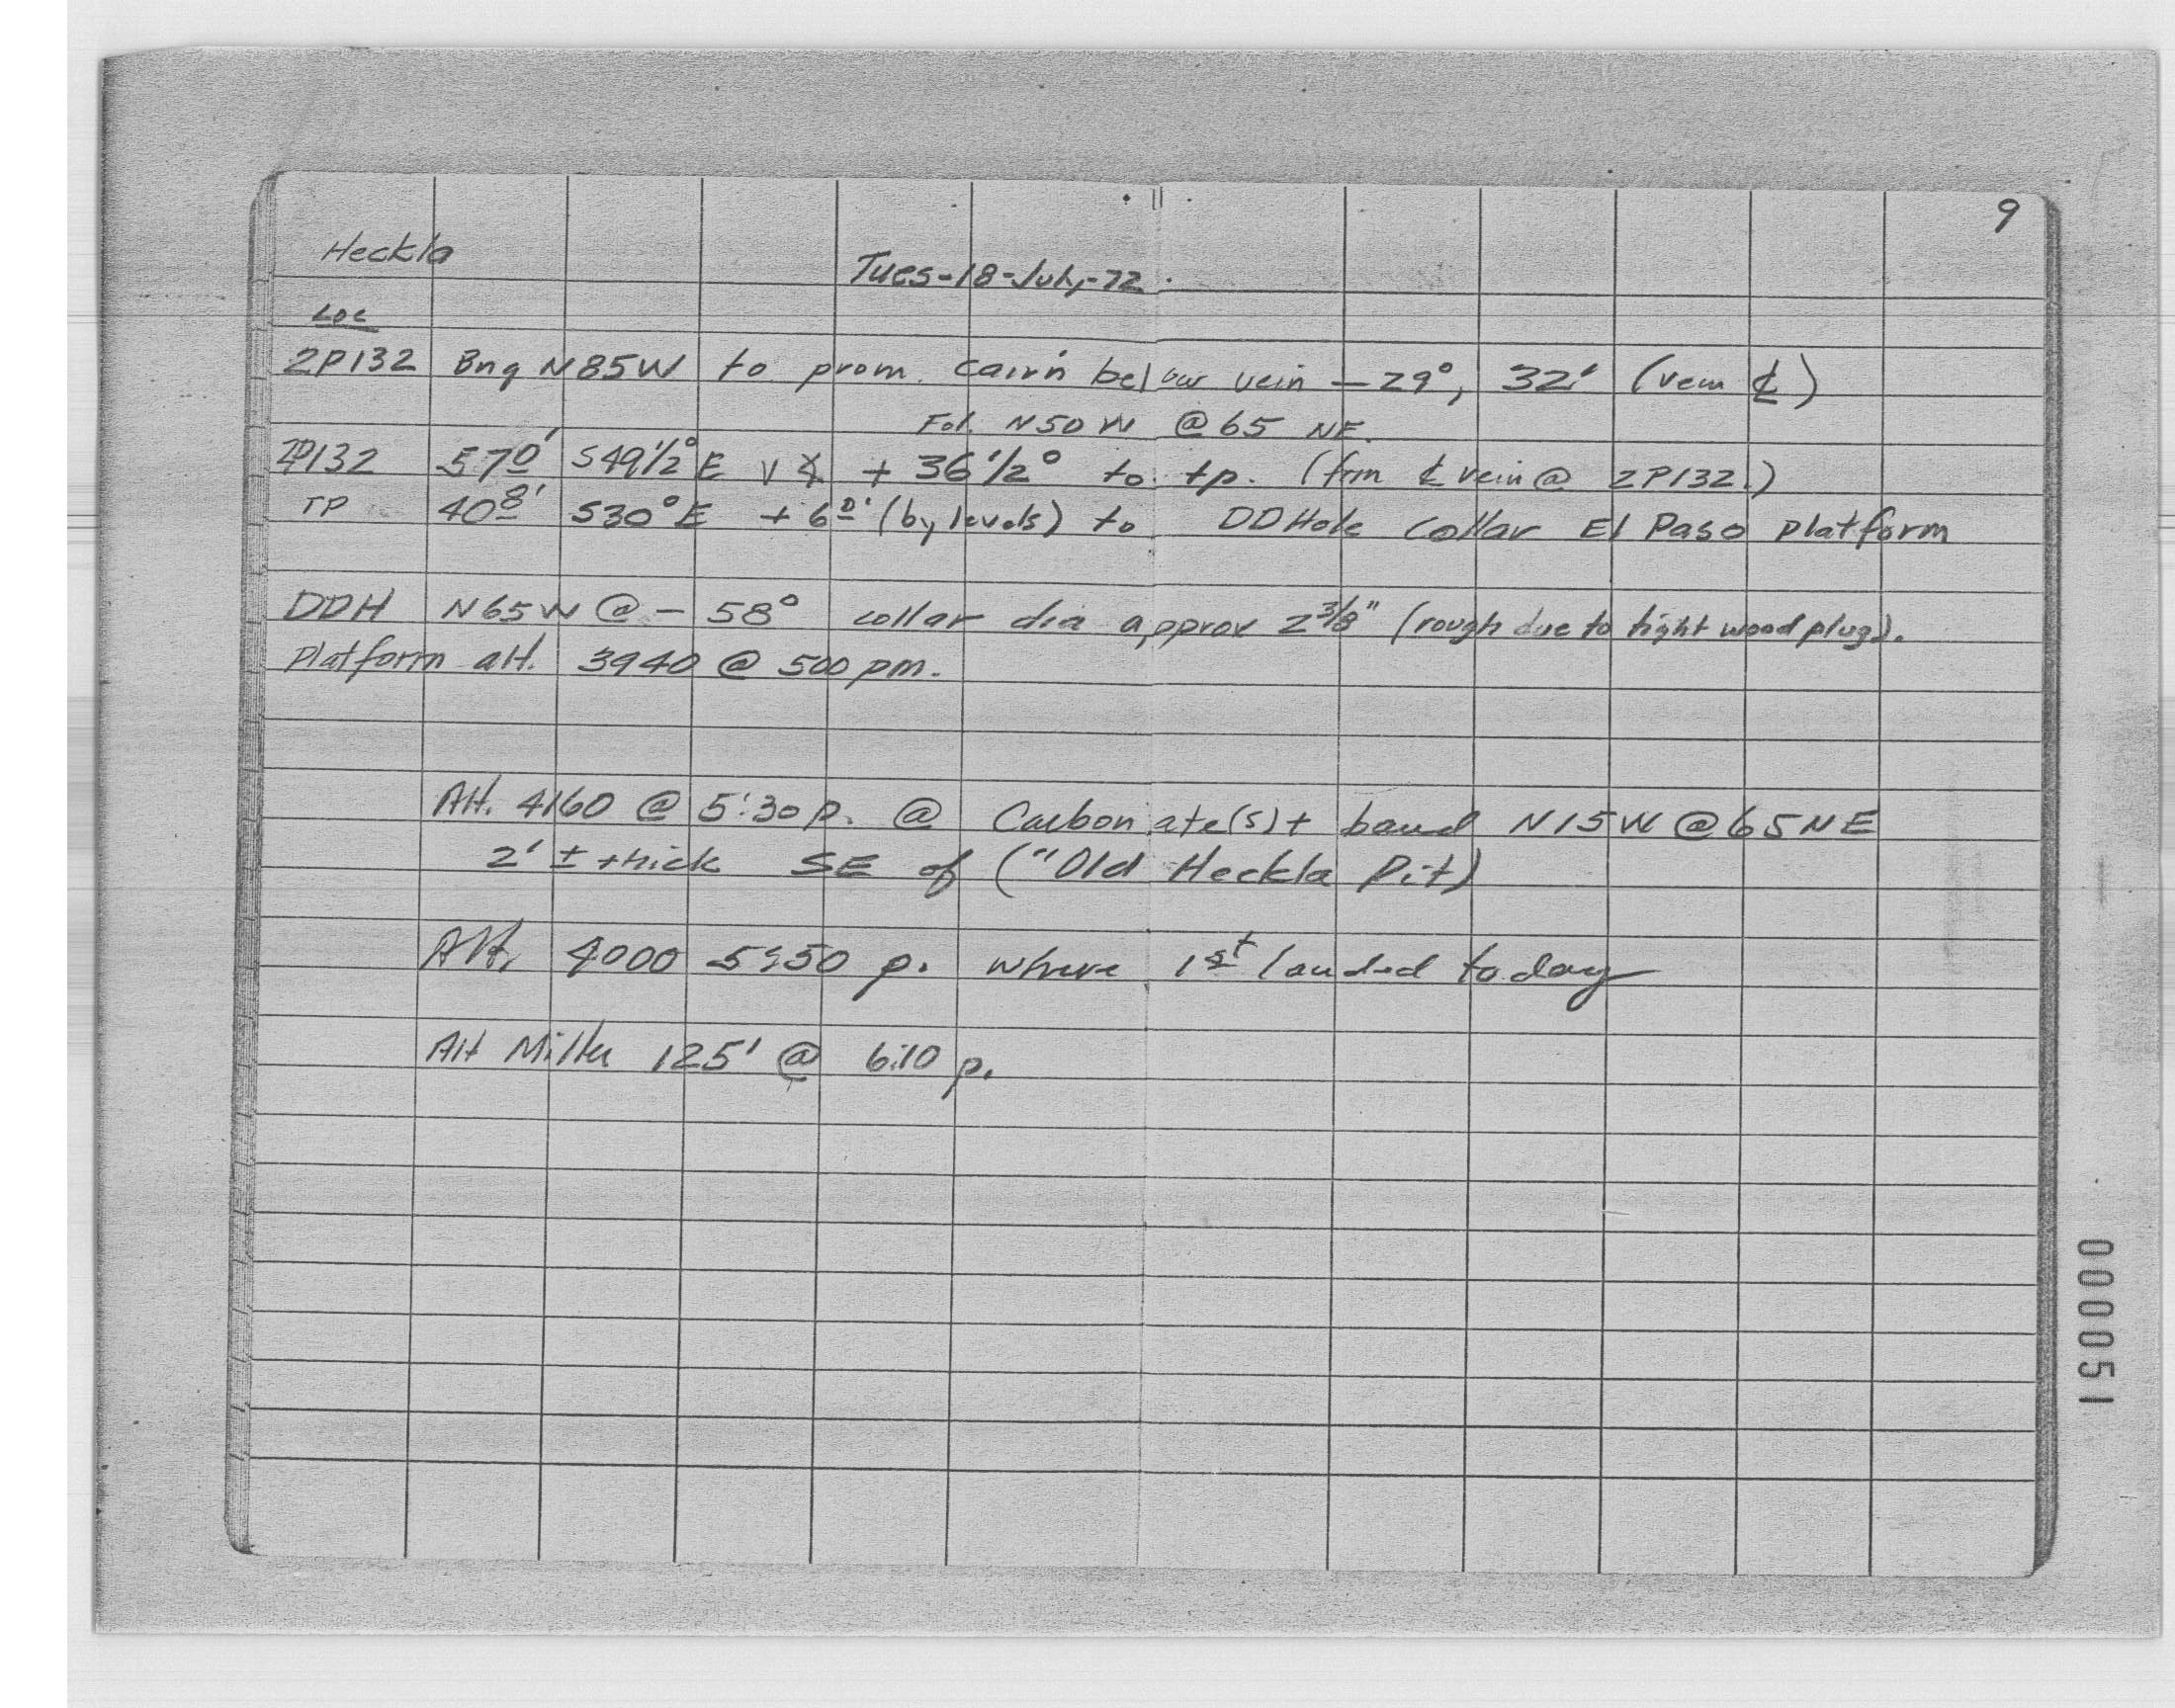 9
Heckla
Tues-18-July-72.
Loc
2P132 Bng N85W to prom. cairn below vein -29°, 32' (vein ℄)
Fol. N50W @ 65 NE.
2P132 57 0' S49 1/2° E V∡ + 36 1/2° to tp. (frm ℄ vein @ 2P132.)
TP 40 8' S30°E + 6 0' (by levels) to DDHole Collar El Paso platform
DDH N65W @ - 58° collar dia approx 2 3/8" (rough due to tight wood plug).
Platform alt. 3940 @ 500 pm.
Alt. 4160 @ 5:30 p. @ Carbonate(s)+ band N15W @ 65NE
2' ± thick SE of ("Old Heckla Pit)
Alt, 4000 5:50 p. where 1st landed today
Alt Miller 125' @ 6:10 p.
000051